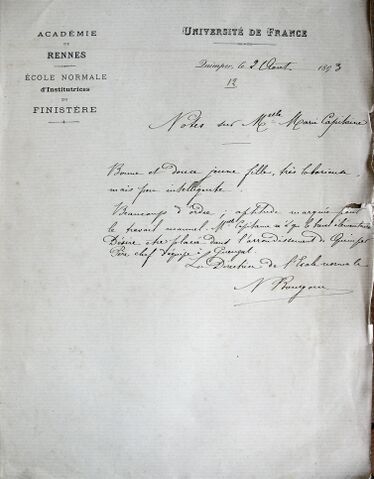 ACADÉMIE
DE
RENNES
ÉCOLE NORMALE
d'Institutrices
DU
FINISTÈRE
UNIVERSITÉ DE FRANCE
Quimper, le 2 Août 1893
12
Notes sur Melle Marie Capitaine
Bonne et douce jeune fille, très laborieuse
mais peu intelligente.
Beaucoup d'ordre ; aptitude marquée pour
le travail manuel. Melle Capitaine n'a que le brevet élémentaire
Désire être placée dans l'arrondissement de Quimper
Père chef d'équipe à Quimper.
La Direction de l'École normale